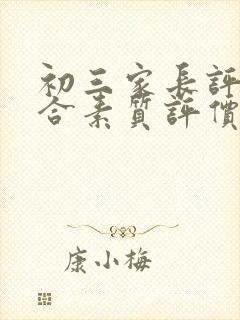 初三家長評
合素質評價
康小梅